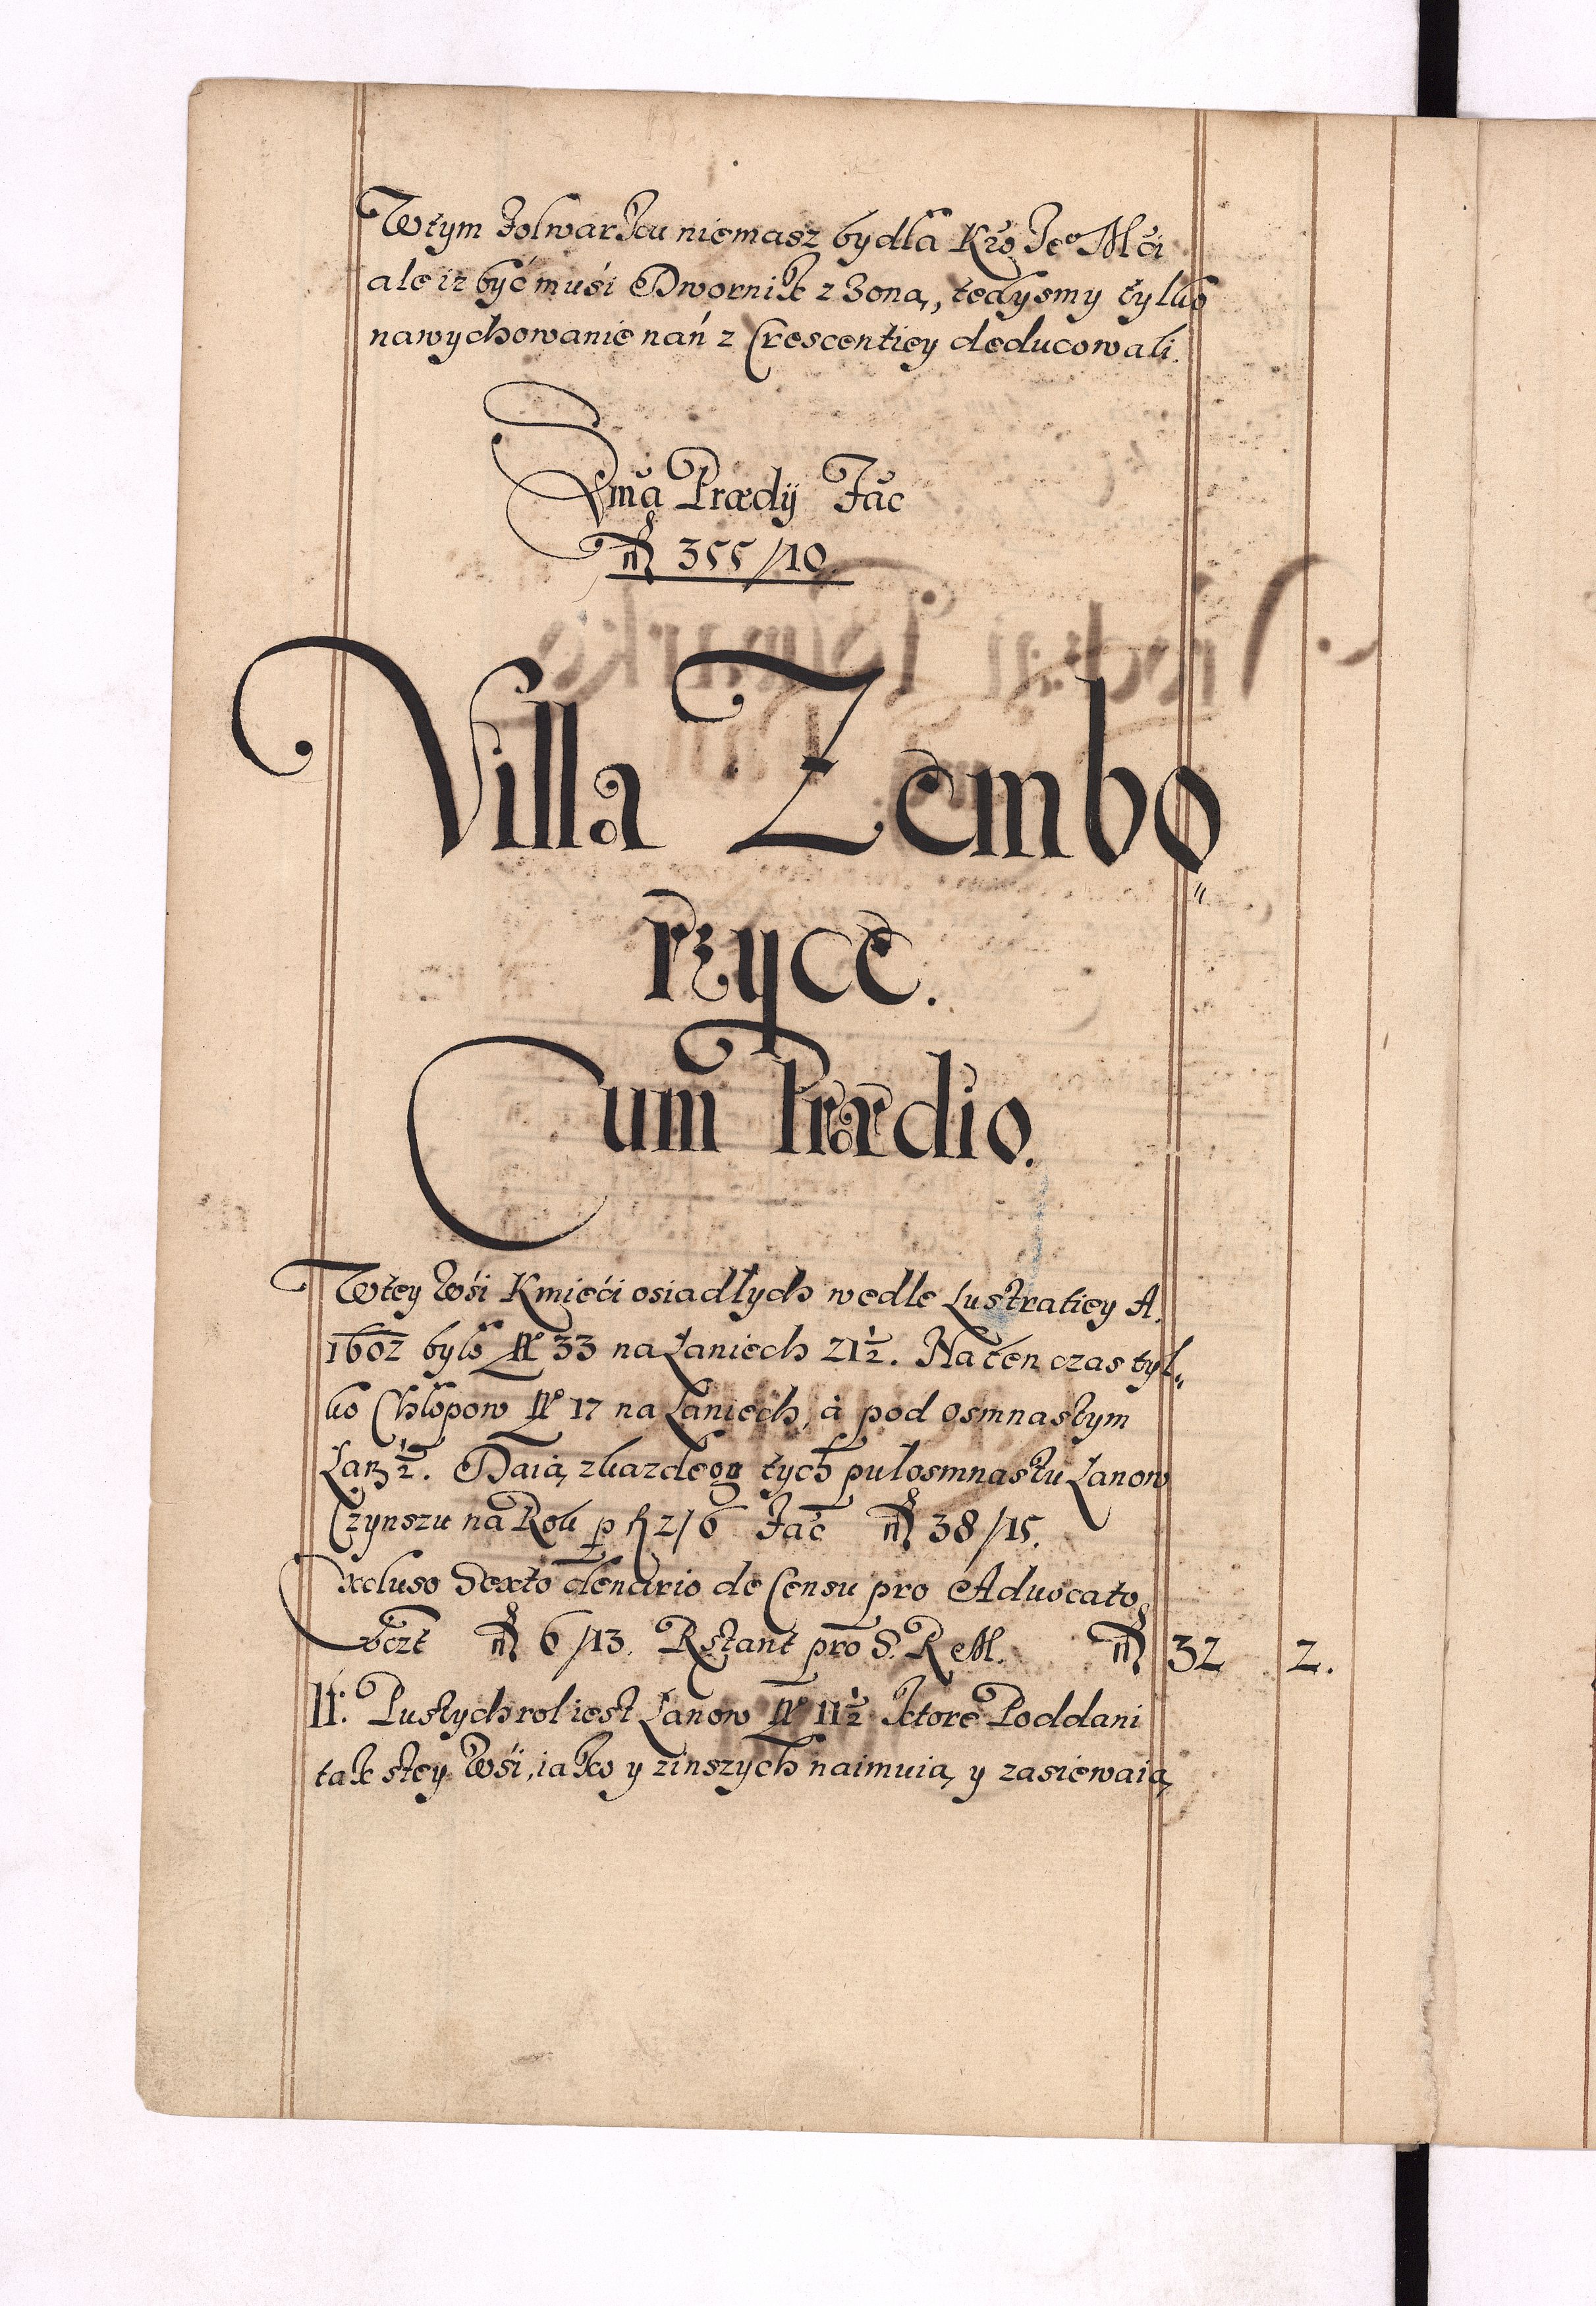 Wtym folwarku niemasz bydła Kro Jeo Mći
ale iz być muśi Dwornik z Zoną, tedysmy tylko
nawychowanie nań z Crescentiey deducowali.
Sma Prædij Fac
fl 355/10
Villa Zembo„
rzyce.
Cum Prædio.
Wtey Wśi Kmieći osiadłych wedle Lustratiey A.
1602 było No 33 na Łaniech 21½. Na ten czas tyl„
ko Chłopow No 17 na Łaniech, á pod osmnastym
Łan ½. Daią zkazdego tych pułosmnastu Łanow
Czynszu na Rok p fl 2/6 Fac fl 38/15.
Excluso Sexto denario de Censu pro Aduocato
vczt fl 6/13. Restant pro S. R M. fl 32 2.
It: Pustych rol iest Łanow No 11½ Ktore Poddani
tak stey Wśi, iako y zinszych naimuią y zasiewaią